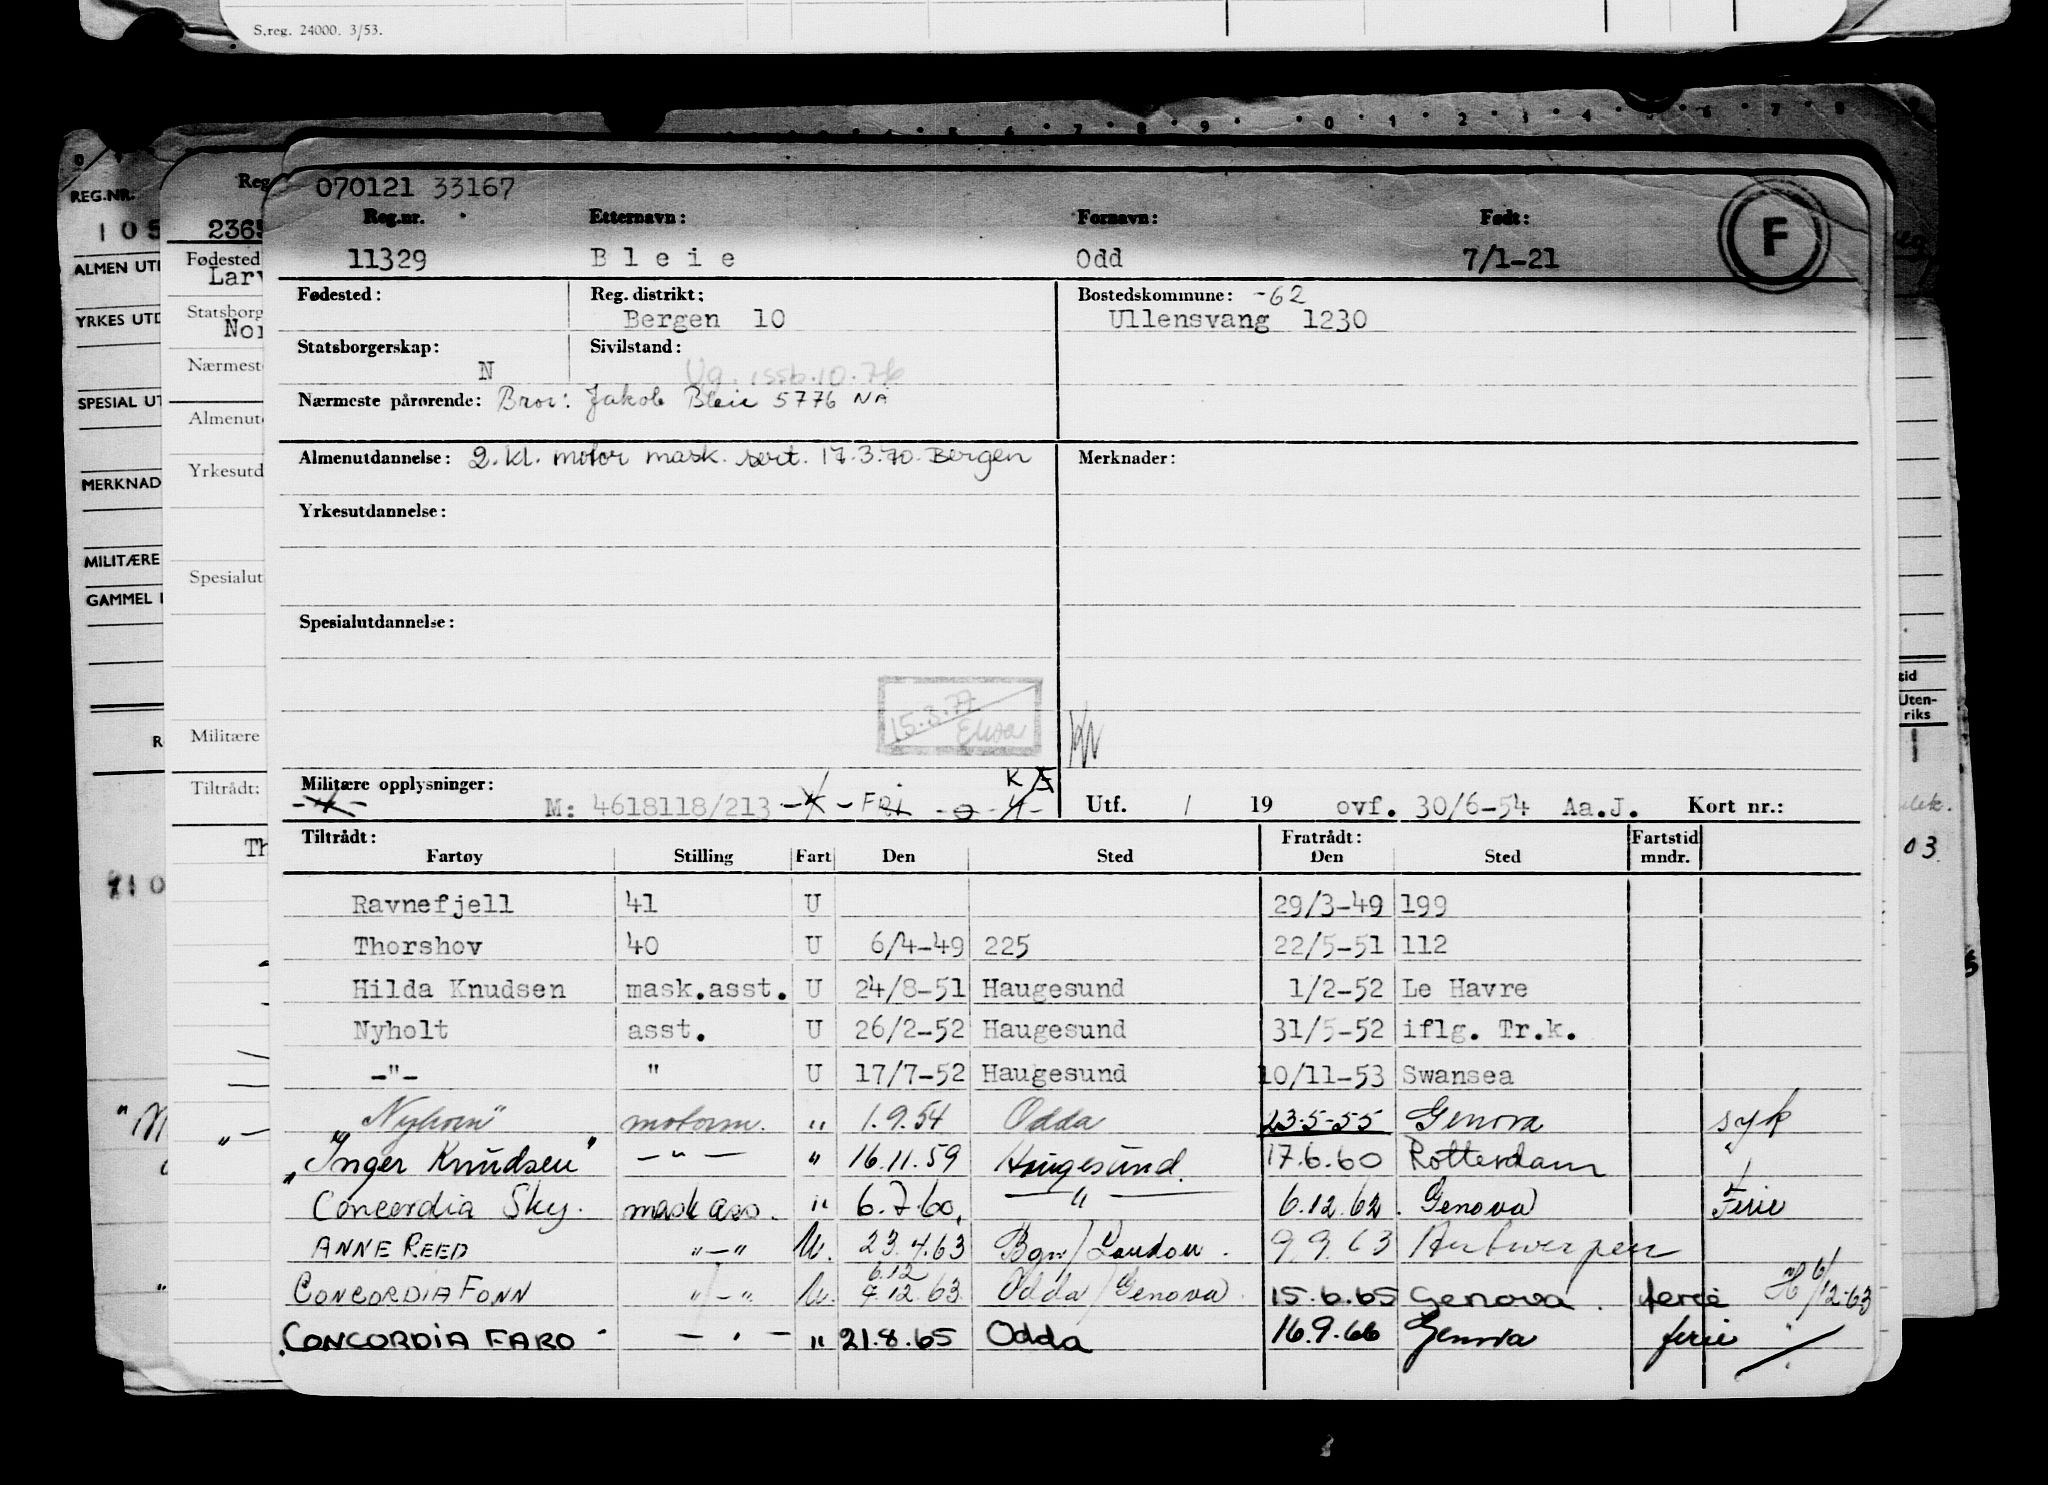 S.reg. 24000. 3/53.
REG.NR.
105
ALMEN UTD
YRKES UTD
SPECIAL UT
MERKNAD
MILITÆRE
GAMMEL
Reg
2365
Fødested
Larv
Statsborg
Nor
Nærmest
Almenut
Yrkesutd
Spesialut
Militære
Tiltrådt:
Th
070121 33167
Reg.nr. Etternavn: Fornavn: Født:
11329 Bleie Odd 7/1-21 F
Fødested: Reg. distrikt: Bostedskommune: -62
Bergen 10 Ullensvang 1230
Statsborgerskap: Sivilstand:
N Vg. issb.10.76
Nærmeste pårørende: Bror: Jakob Bleie 5776 NÅ
Almenutdannelse: 2. kl. motor mask. sert. 17.3.70. Bergen Merknader:
Yrkesutdannelse:
Spesialutdannelse:
15.3.77
Elisa
Militære opplysninger: K F
M: 4618118/213 -4- FRI Utf. / 19 ovf. 30/6-54 Aa.J. Kort nr.:
Tiltrådt: Fratrådt: Fartstid
Fartøy Stilling Fart Den Sted Den Sted mndr.
Ravnefjell 41 U 29/3-49 199
Thorshov 40 U 6/4-49 225 22/5-51 112
Hilda Knudsen mask.asst. U 24/8-51 Haugesund 1/2-52 Le Havre
Nyholt asst. U 26/2-52 Haugesund 31/5-52 iflg. Tr.k.
-"- " U 17/7-52 Haugesund 10/11-53 Swansea
"Nyhorn" motorm. " 1.9.54 Odda 23.5-55 Genova syk
"Inger Knudsen" -"- " 16.11.59 Haugesund. 17.6.60 Rotterdam "
Concordia Sky. mask ass. " 6.7.60. -"- 6.12.62. Genova Ferie
ANNE REED "-" U. 23.4.63 Bgn/London. 9.9.63 Antwerpen
6.12
CONCORDIA FONN "-" U. 7.12.63 Odda/Genova. 15.6.65 Genova. ferie H 6/12-63
CONCORDIA FARO - " - " 21.8.65 Odda 16.9.66 Genova ferie
tid
Uten-
riks
03